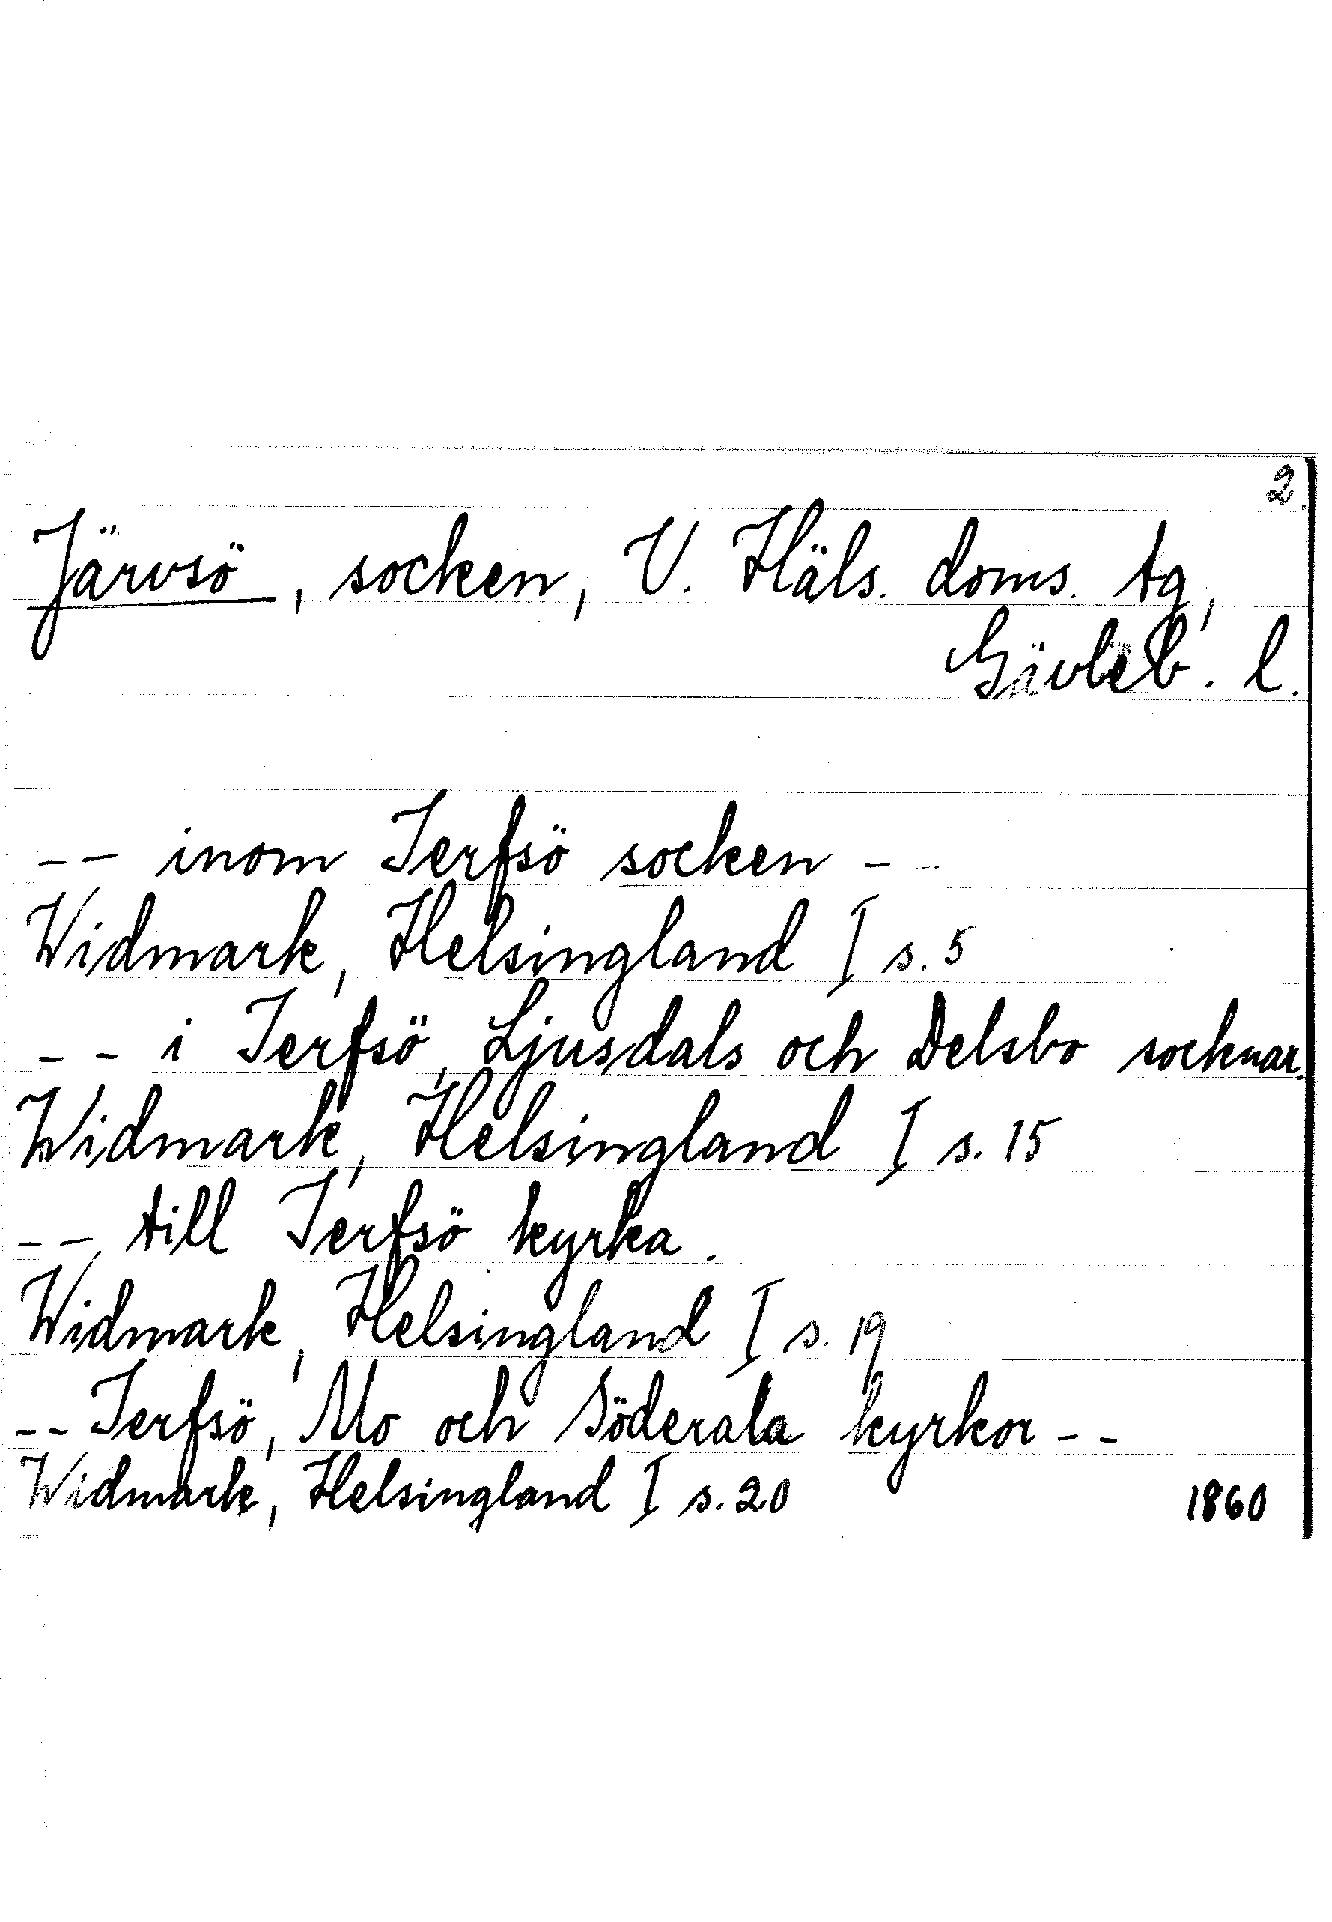 2.
Järvsö, socken, V. Häls. doms. tg,
Gävleb. l.
-- inom Jerfsö socken --
Widmark, Helsingland I s. 5
-- i Jerfsö, Ljusdals och Delsbo socknar.
Widmark, Helsingland I s. 15
-- till Jerfsö kyrka.
Widmark, Helsingland I s. 19
-- Jerfsö, Mo och Söderala kyrkor --
Widmark, Helsingland I s. 20 1860